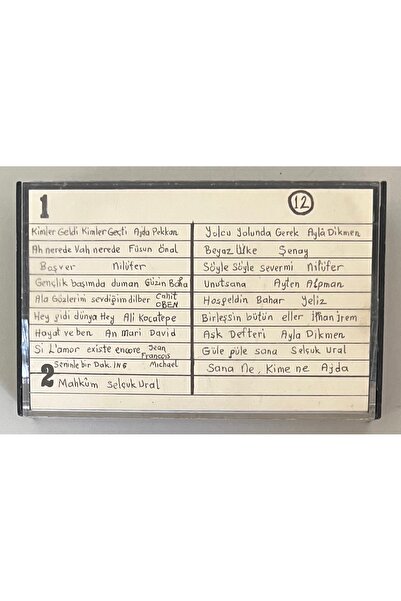 1
12
Kimler Geldi Kimler Geçti Ajda Pekkan
Ah nerede Vah nerede Füsun Önal
Başver Nilüfer
Gençlik başımda duman Güzin Baha
Ala Gözlerini sevdiğim dilber Cahit OBEN
Hey gidi dünya Hey Ali Kocatepe
Hayat ve ben An Mari David
Si L'amor existe encore Jean François Michael
2 Seninle bir Dak. ING
Mahkûm Selçuk Ural
Yolcu Yolunda Gerek Ayla Dikmen
Beyaz Ülke Şenay
Söyle Söyle severmi Nilüfer
Unutsana Ayten Alpman
Hoşgeldin Bahar Yeliz
Birleşsin bütün eller İlhan İrem
Aşk Defteri Ayla Dikmen
Güle güle sana Selçuk Ural
Sana Ne, Kime ne Ajda